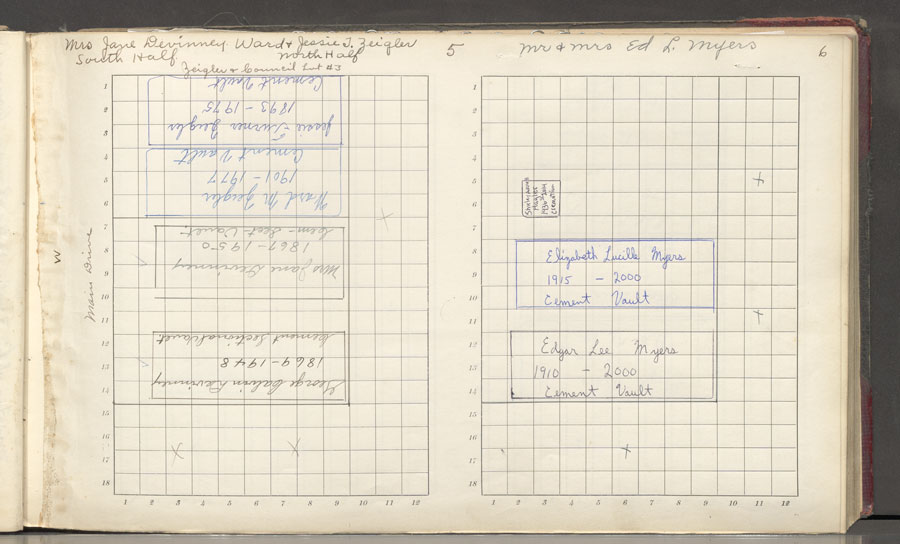 Mrs Jane Devinney Ward & Jessie T. Zeigler
South Half North Half
Zeigler & Council Lot #3
5
Mr & Mrs Ed L. Myers
6
W
Main Drive
Jessie Turner Zeigler
1893 - 1975
Cement Vault
Ward M. Zeigler
1901 - 1977
Cement Vault
Mrs Jane Devinney
1867 - 1950
George Calvin Devinney
1869 - 1948
Cement Sectional
1
2
3
4
5
6
7
8
9
10
11
12
13
14
15
16
17
18
1 2 3 4 5 6 7 8 9 10 11 12
Cremation
Elizabeth Lucille Myers
1915 - 2000
Cement Vault
Edgar Lee Myers
1910 - 2000
Cement Vault
1
2
3
4
5
6
7
8
9
10
11
12
13
14
15
16
17
18
1 2 3 4 5 6 7 8 9 10 11 12